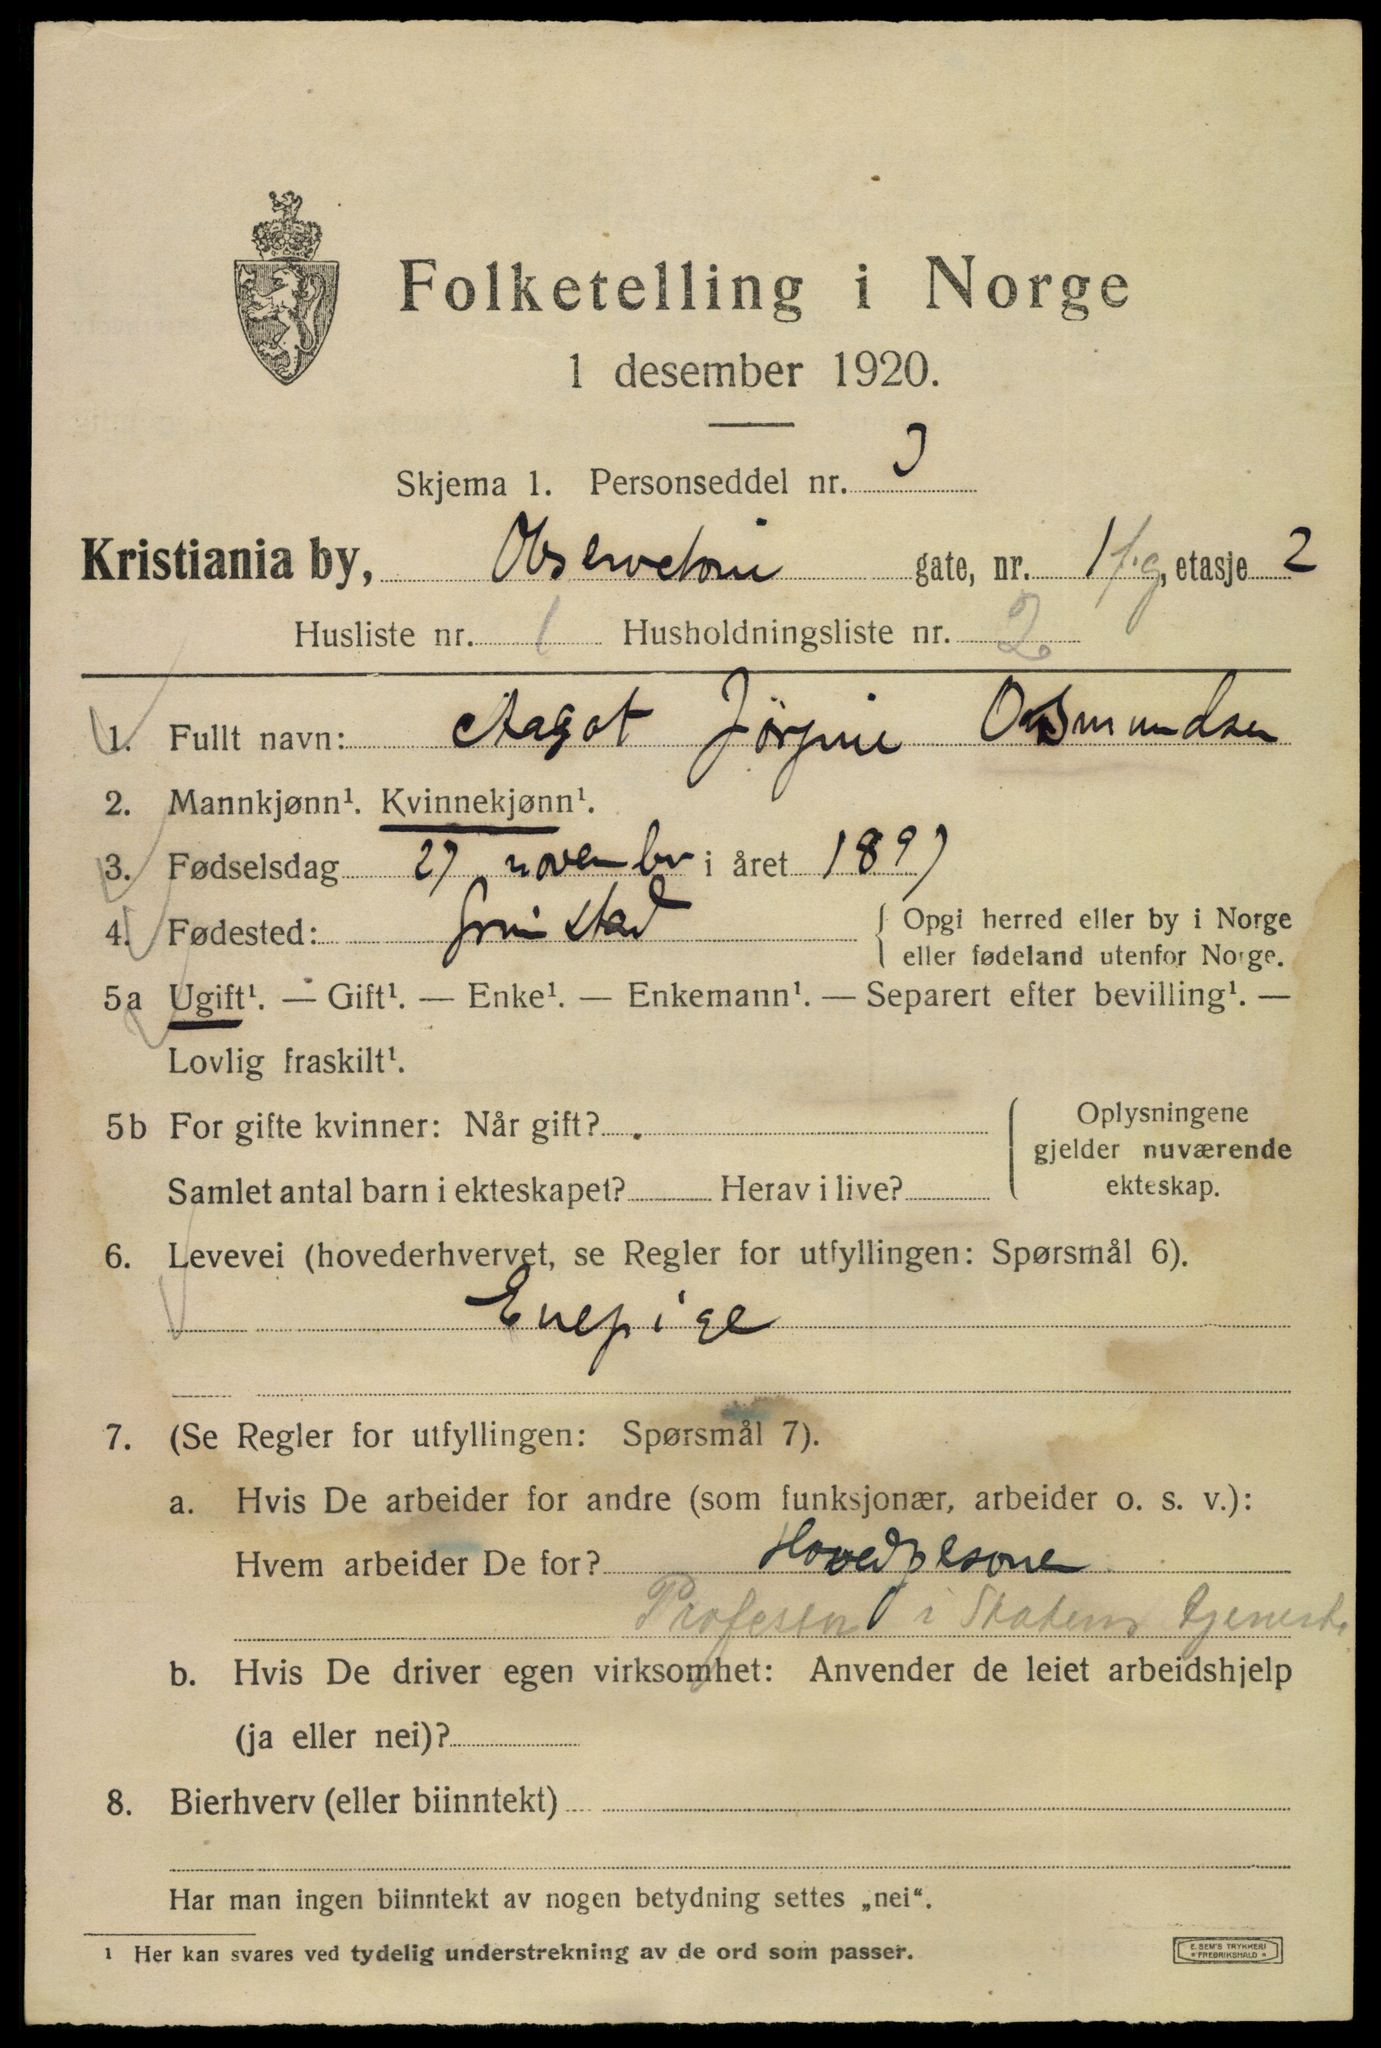 Folketelling i Norge
1 desember 1920.
Skjema 1. Personseddel nr. 3
Kristiania by, Observatorie gate, nr. 1 f.g, etasje 2
Husliste nr. 1 Husholdningsliste nr. 2
1. Fullt navn: Aagot Jørgine Osmundsen
2. Mannkjønn¹. Kvinnekjønn¹.
3. Fødselsdag 27 november i året 1897
4. Fødested: Grimstad { Opgi herred eller by i Norge
eller fødeland utenfor Norge.
5a Ugift¹. — Gift¹. — Enke¹. — Enkemann¹. — Separert efter bevilling¹. —
Lovlig fraskilt¹.
5b For gifte kvinner: Når gift? { Oplysningene
gjelder nuværende
Samlet antal barn i ekteskapet? Herav i live? ekteskap.
6. Levevei (hovederhvervet, se Regler for utfyllingen: Spørsmål 6).
Enepige
7. (Se Regler for utfyllingen: Spørsmål 7).
a. Hvis De arbeider for andre (som funksjonær, arbeider o. s. v.):
Hvem arbeider De for? Hovedpesone
Professor i Statens tjeneste
b. Hvis De driver egen virksomhet: Anvender de leiet arbeidshjelp
(ja eller nei)?
8. Bierhverv (eller biinntekt)
Har man ingen biinntekt av nogen betydning settes „nei“.
¹ Her kan svares ved tydelig understrekning av de ord som passer.
E. SEM'S TRYKKERI
* FREDRIKSHALD *